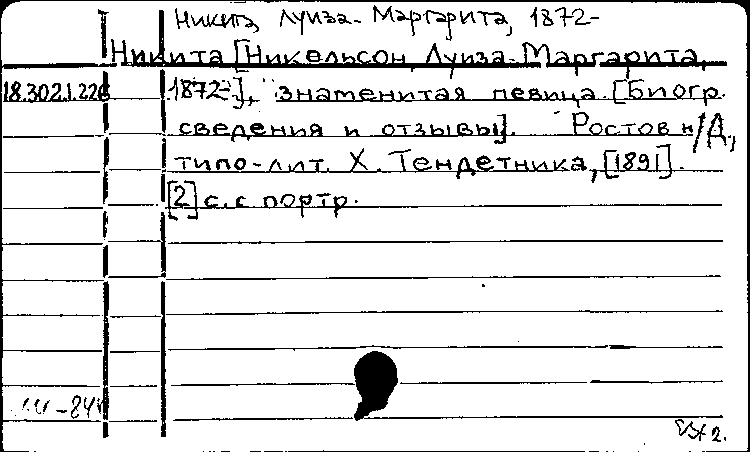 Никита, Луиза-Маргарита, 1872-
Никита [Никельсон, Луиза-Маргарита,
18.302.1.226 1872-], знаменитая певица. [Биогр.
сведения и отзывы]. Ростов н/Д.,
типо-лит. Х. Тендетника, [1891].
[2] с. с портр.
-84
2.